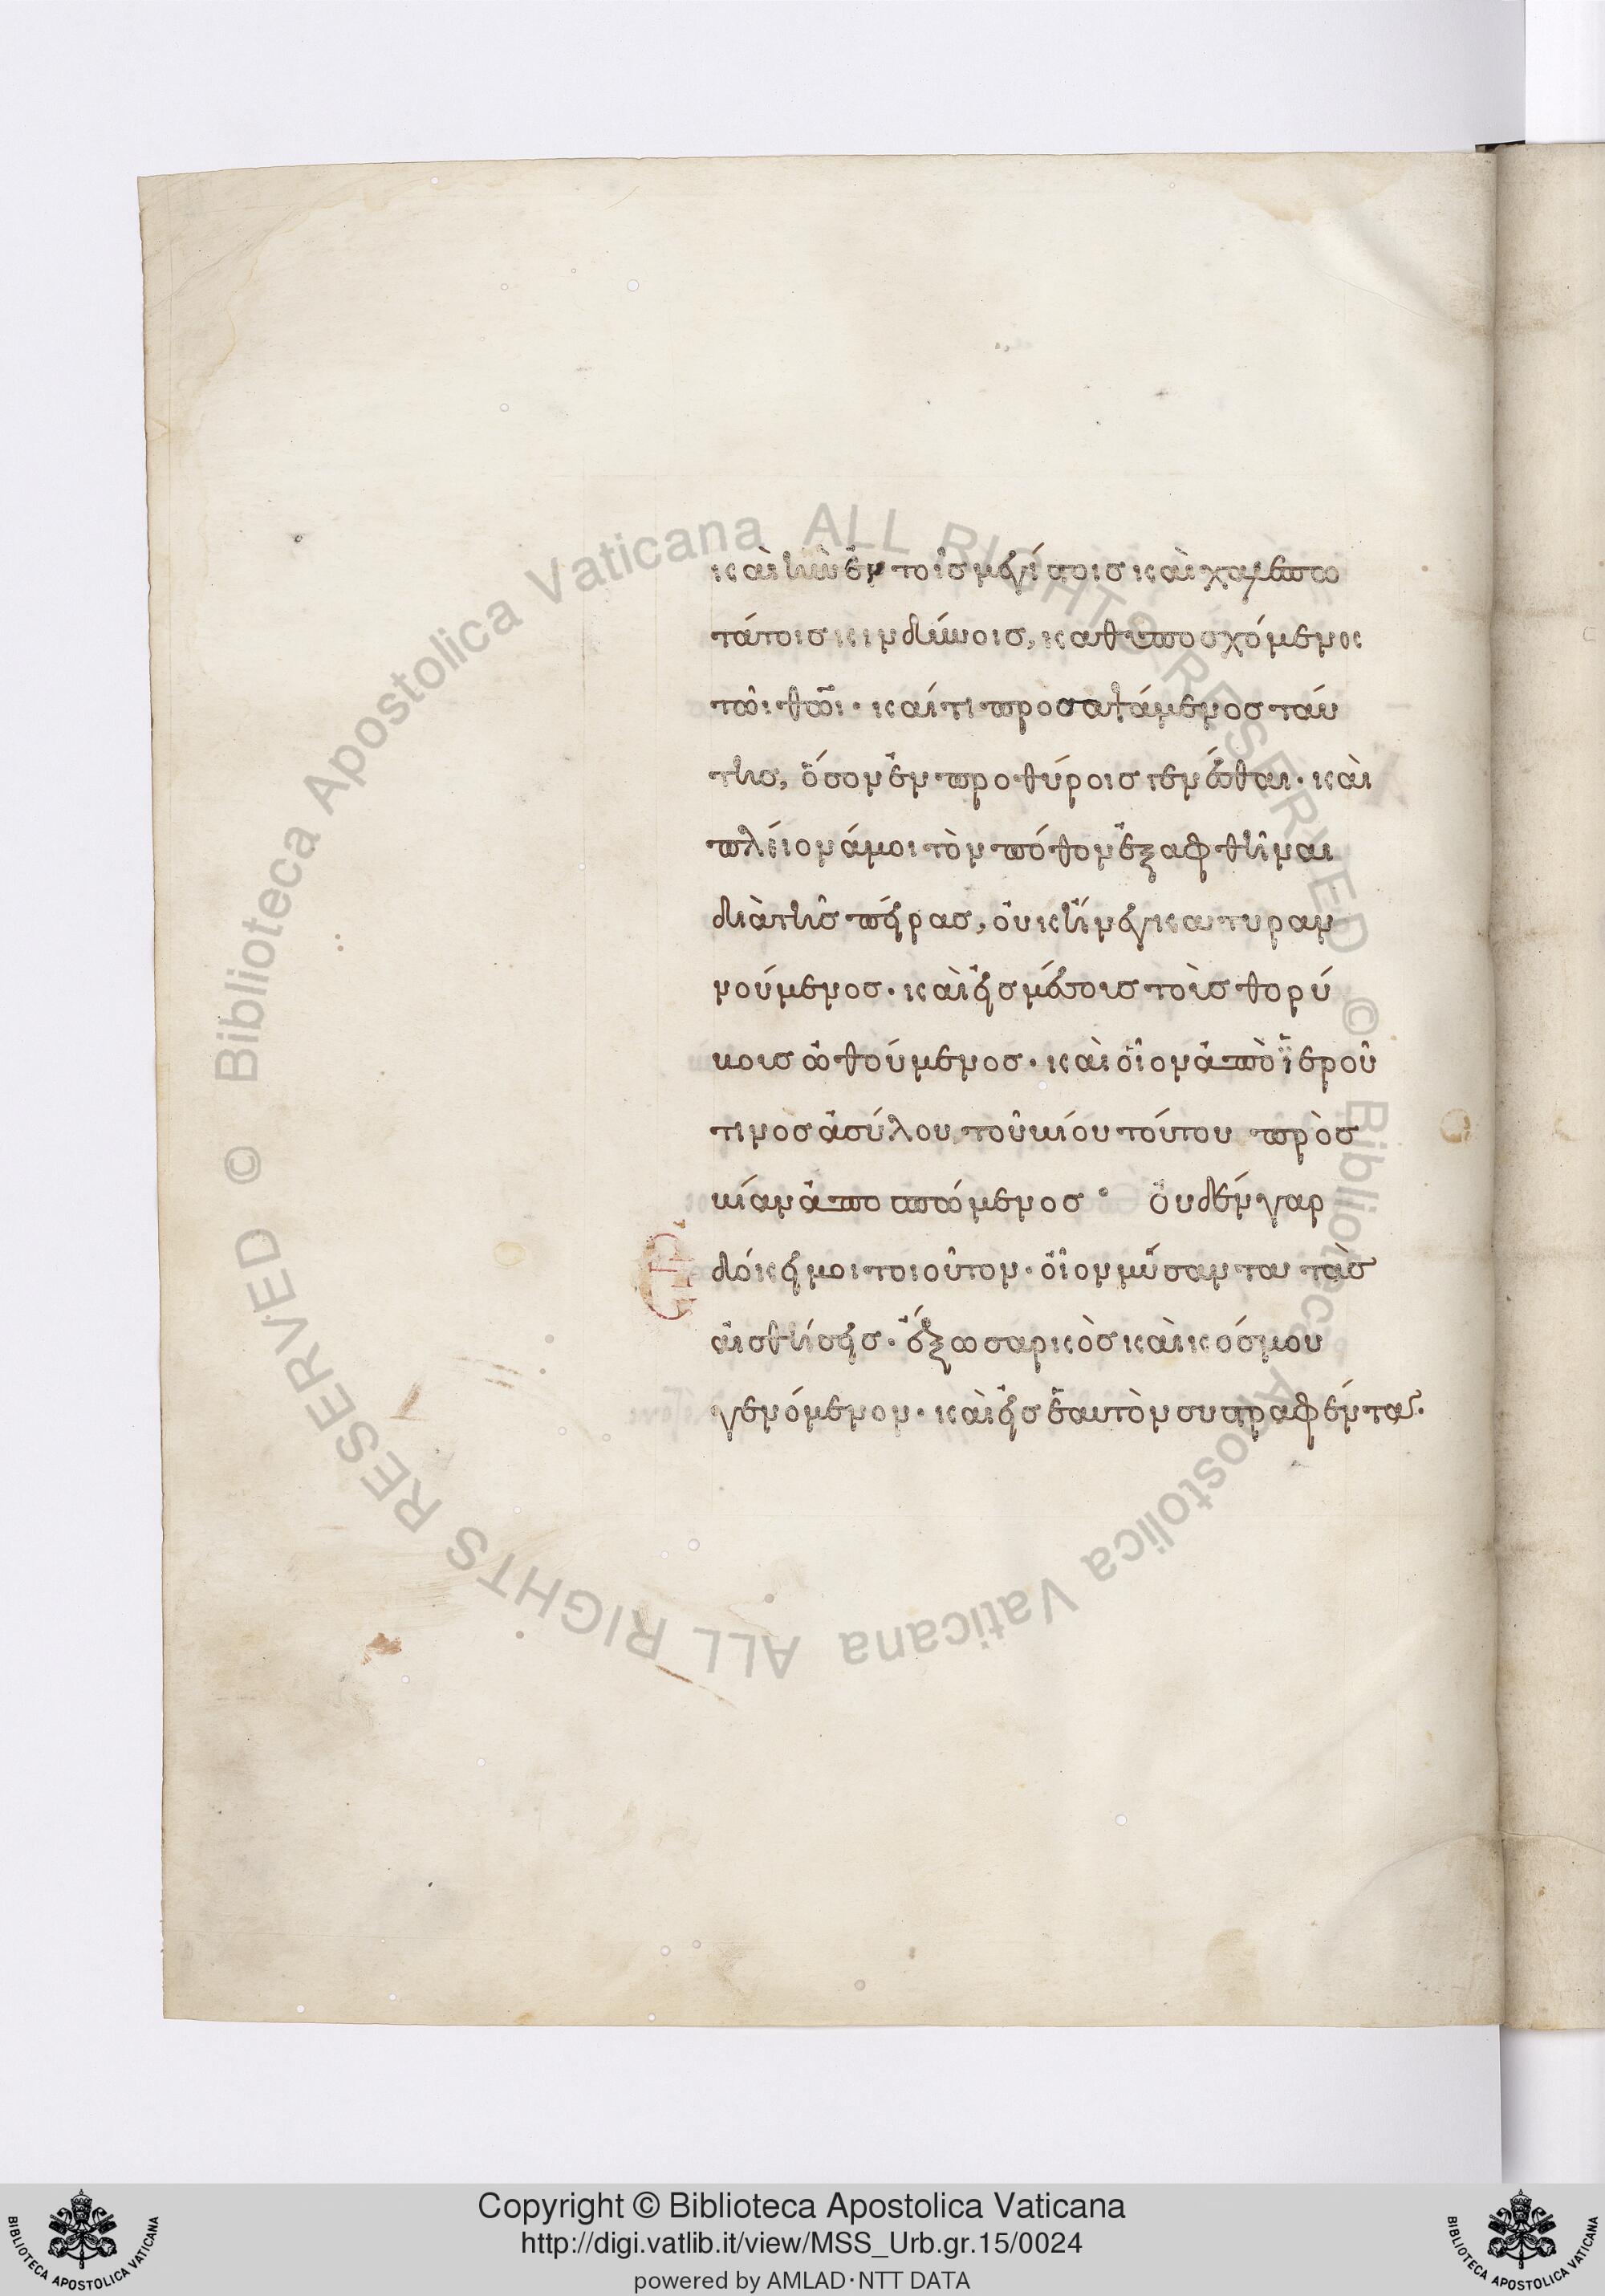 καὶ ἣν ἐν τοῖς μεγίστοις καὶ χαλεπω
τάτοις κινδύνοις, καθυποσχόμενος
τῶι θ͞ῶι· καί τι προσαψάμενος ταύ
της, ὅσον ἐν προθύροις γενέσθαι· καὶ
πλεῖον ἀμοι τὸν πόθον ἐξαφθῆναι
διὰ τῆς πείρας, οὐκ ἤνεγκα τυραν
νούμενος· καὶ εἰς μέσους τοὺς θορύ
βους ὠθούμενος· καὶ οἷον ἀπὸ ἱεροῦ
τινος ἀσύλου τοῦ βίου τούτου πρὸς
βίαν ἀποσπώμενος· Οὐδὲν γαρ
δόκει μοι τοιοῦτον· οἷον μύσαντα τὰς
αἰσθήσεις· ἔξω σαρκὸς καὶ κόσμου
γενόμενον· καὶ εἰς ἑαυτὸν συστραφέντα·
Ε
Copyright © Biblioteca Apostolica Vaticana
http://digi.vatlib.it/view/MSS_Urb.gr.15/0024
powered by AMLAD·NTT DATA
BIBLIOTECA APOSTOLICA VATICANA
BIBLIOTECA APOSTOLICA VATICANA
© Biblioteca Apostolica Vaticana ALL RIGHTS RESERVED © Biblioteca Apostolica Vaticana ALL RIGHTS RESERVED